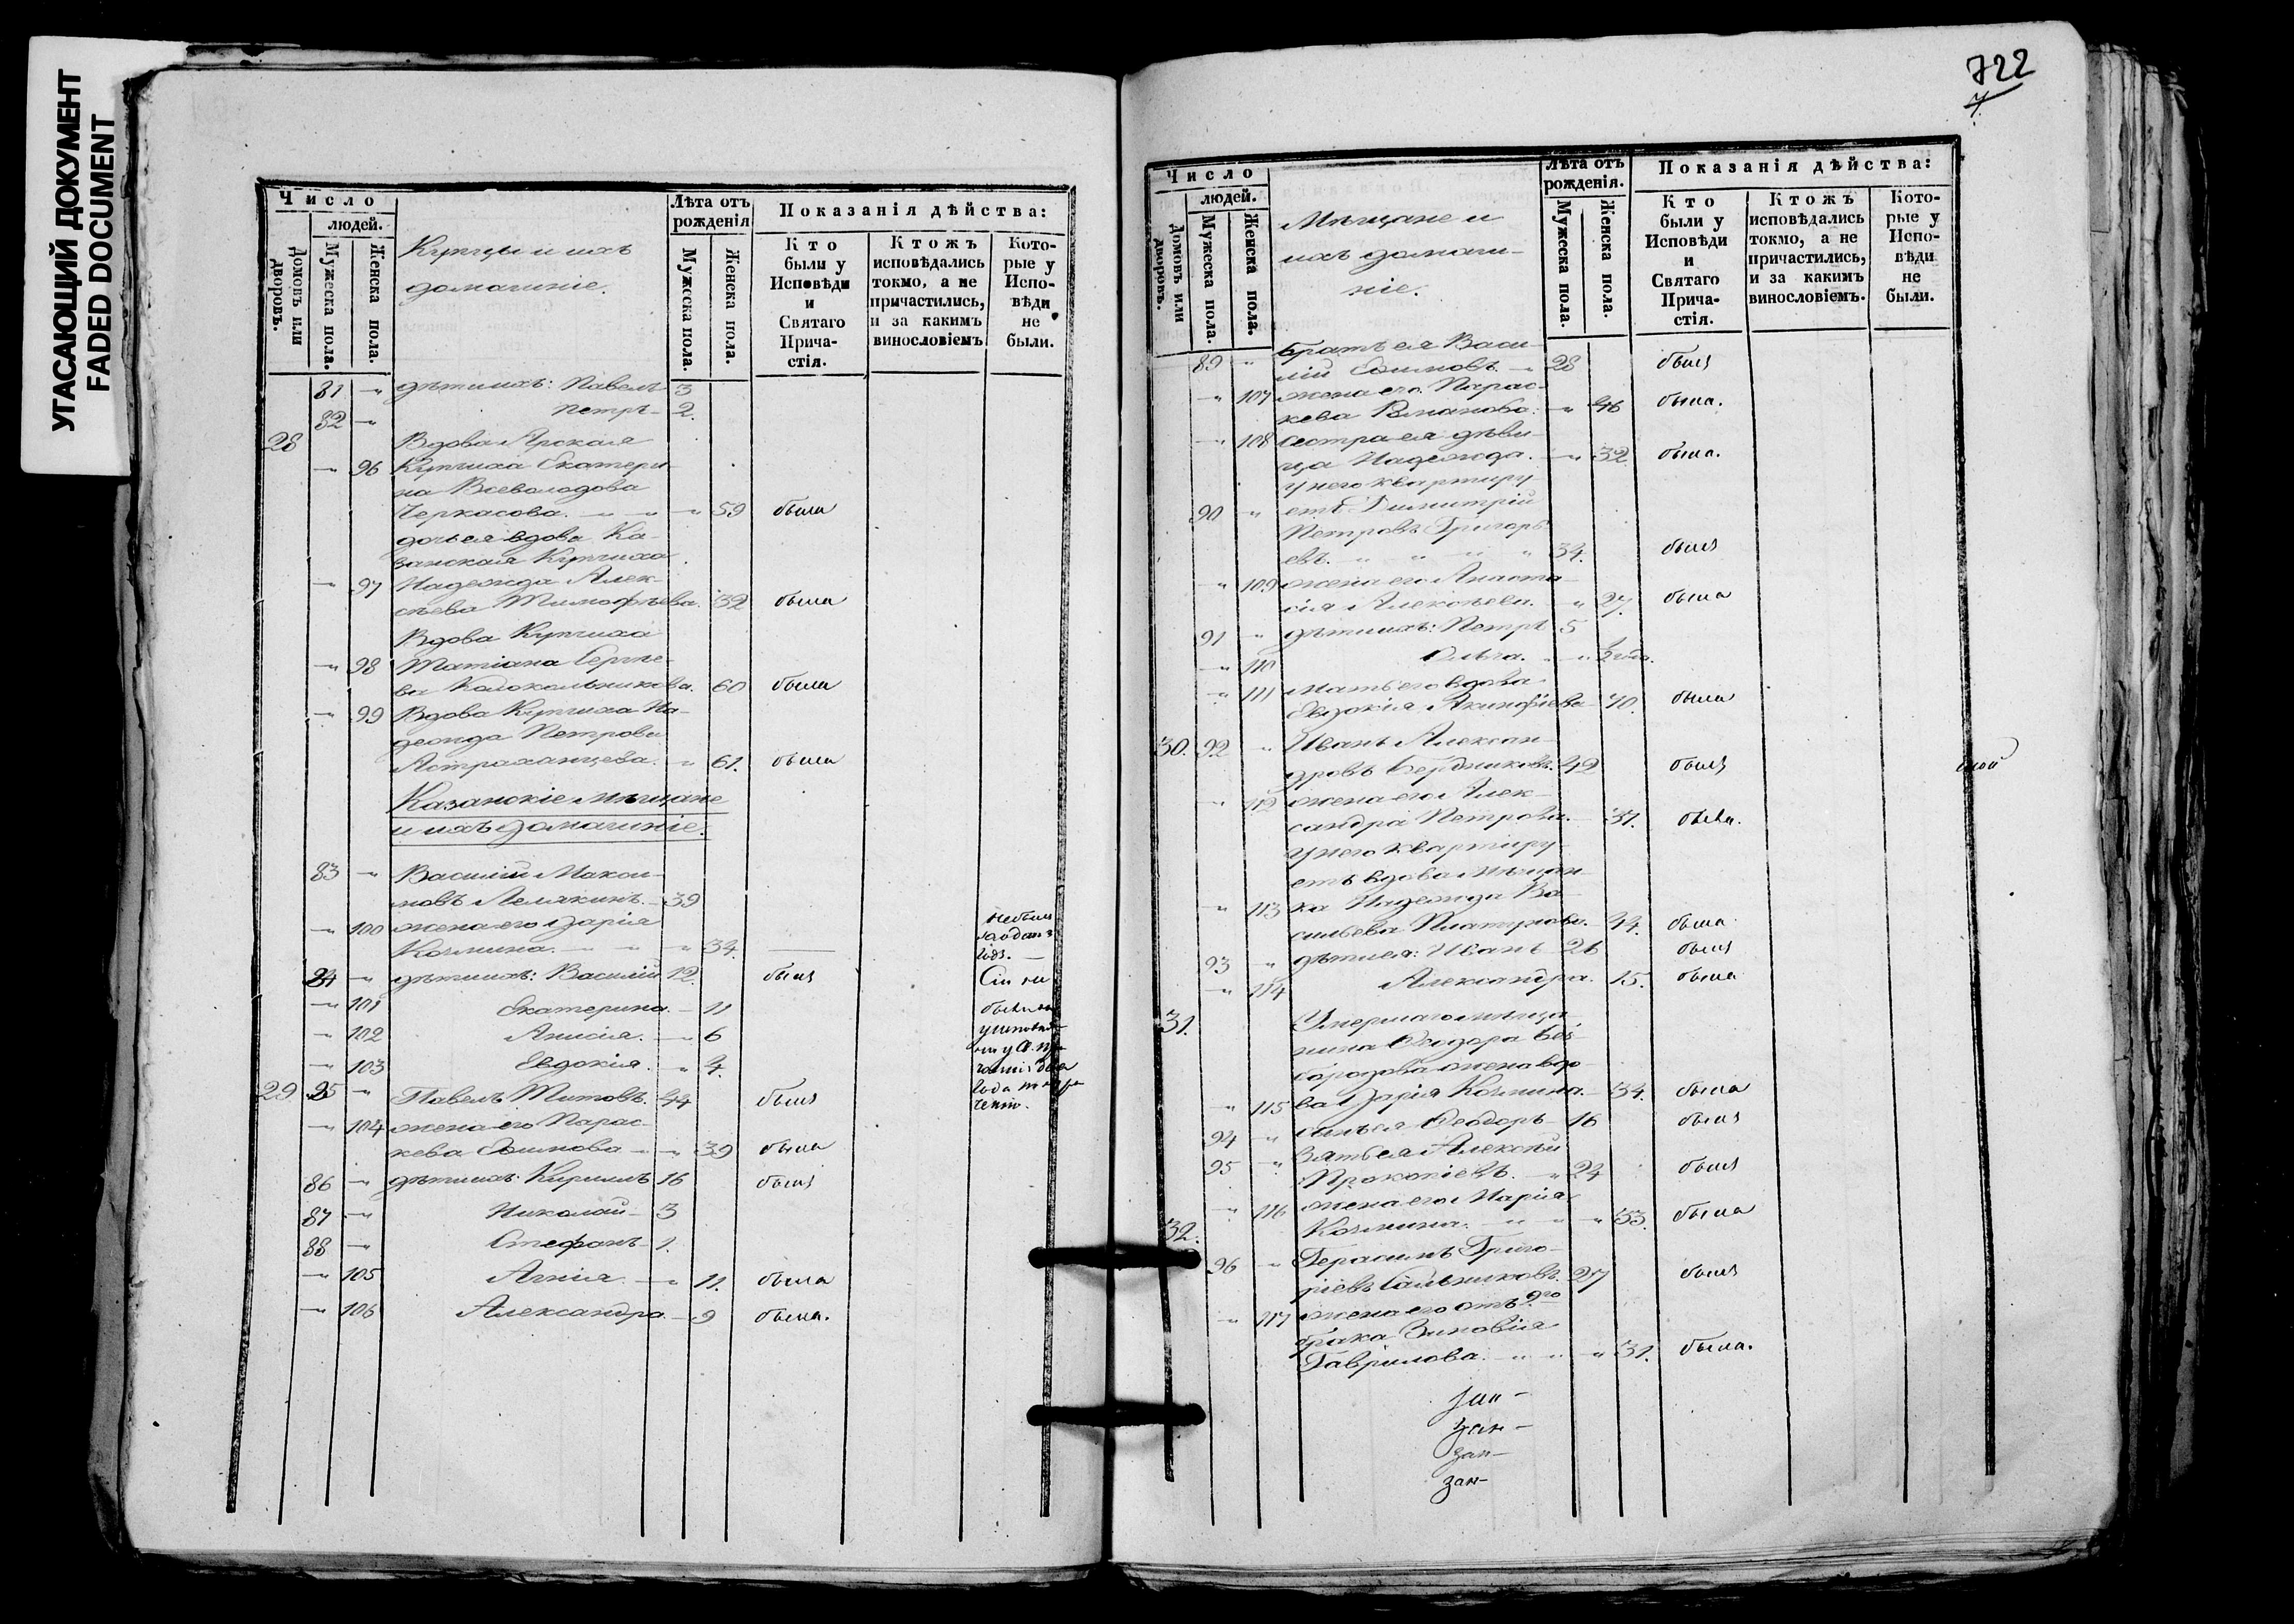 УГАСАЮЩИЙ ДОКУМЕНТ
FADED DOCUMENT
Число
людей.
Домовъ или дворовъ.
Мужеска пола.
Женска пола.
Купцы и ихъ
домашніе.
Лѣта отъ
рожденія
Мужеска пола.
Женска пола.
Показанія дѣйства:
Кто
были у
Исповѣди
и
Святаго
Прича-
стія.
Ктожъ
исповѣдались
токмо, а не
причастились,
и за какимъ
винословіемъ
Кото-
рые у
Испо-
вѣди
не
были.
81 " дѣти ихъ: Павелъ 3
82 " Петръ 2.
28 Вдова Арская
" 96 Купчиха Екатери-
на Всеволодова
Черкасова. " " " 59 была
дочь ея вдова Ка-
занская Купчиха
" 97 Надежда Алек-
сѣева Тимофѣева. 32 была
Вдова Купчиха
" 98 Татіана Сергѣе-
ва Колокольникова. 60 была
" 99 Вдова Купчиха На-
дежда Петрова
Астраханцева. " 61. была
Казанскіе Мѣщане
и ихъ домашніе.
83 " Василій Макси-
мовъ Лелякинъ. 39
" 100 жена его Дарія
Козмина. " " " 34.
84 " дѣти ихъ: Василій 12. былъ
" 101 Екатерина. 11
" 102 Анисія. " 6
" 103 Евдокія. " 4.
29 85 " Павелъ Титовъ. 44 былъ
" 104 жена его Парас-
кева Еѳимова " " 39 была
86 " дѣти ихъ: Кириллъ 16 былъ
87 " Николай 3
88 " Стефанъ 1.
" 105 Агнія. " 11. была
" 106 Александра. 9 была.
722
Число
людей.
Домовъ или дворовъ.
Мужеска пола.
Женска пола.
Мѣщане и
ихъ домаш-
ніе.
Лѣта отъ
рожденія.
Мужеска пола.
Женска пола.
Показанія дѣйства:
Кто
были у
Исповѣди
и
Святаго
Прича-
стія.
Ктожъ
исповѣдались
токмо, а не
причастились,
и за какимъ
винословіемъ.
Кото-
рые у
Испо-
вѣди
не
были.
89 " братъ ея Васи-
лій Еѳимовъ. " 28 былъ
" 107 жена его Парас-
кева Романова. " 46 была.
" 108 сестра ея дѣви-
ца Надежда. " 32 была.
у него квартиру-
90 " етъ Димитрій
Петровъ Григорь-
евъ. " " " " 34. былъ
" 109 жена его Анаста-
сія Алексѣева. " 27. была
91 " дѣти ихъ: Петръ 5
" 110 Ольга. " " ½ года.
" 111 Мать его вдова
Евдокія Акинфіева 70. была
30. 92 " Иванъ Алексан-
дровъ Бердниковъ. 42 былъ
" 112 жена его Алек-
сандра Петрова. 37. была.
у него квартиру-
етъ вдова мѣщан-
" 113 ка Надежда Ва-
сильева Платунова. 44. была
93 " дѣти ея: Иванъ 26 былъ
" 114 Александра. 15. была
31. Умершаго мѣща-
нина Ѳеодора Без-
бородова жена вдо-
" 115 ва Дарія Козмина. 34. была
94 " сынъ ея Ѳеодоръ 16 былъ
95 " зять ея Алексѣй
Прокопіевъ. " 24 былъ
" 116 жена его Марія
Козмина. " " " 33. была
32.
96 " Герасимъ Григо-
ріевъ Сальниковъ. 27 былъ
" 117 жена его отъ 2го
брака Зиновія
Гаврилова. " " " 31. была.